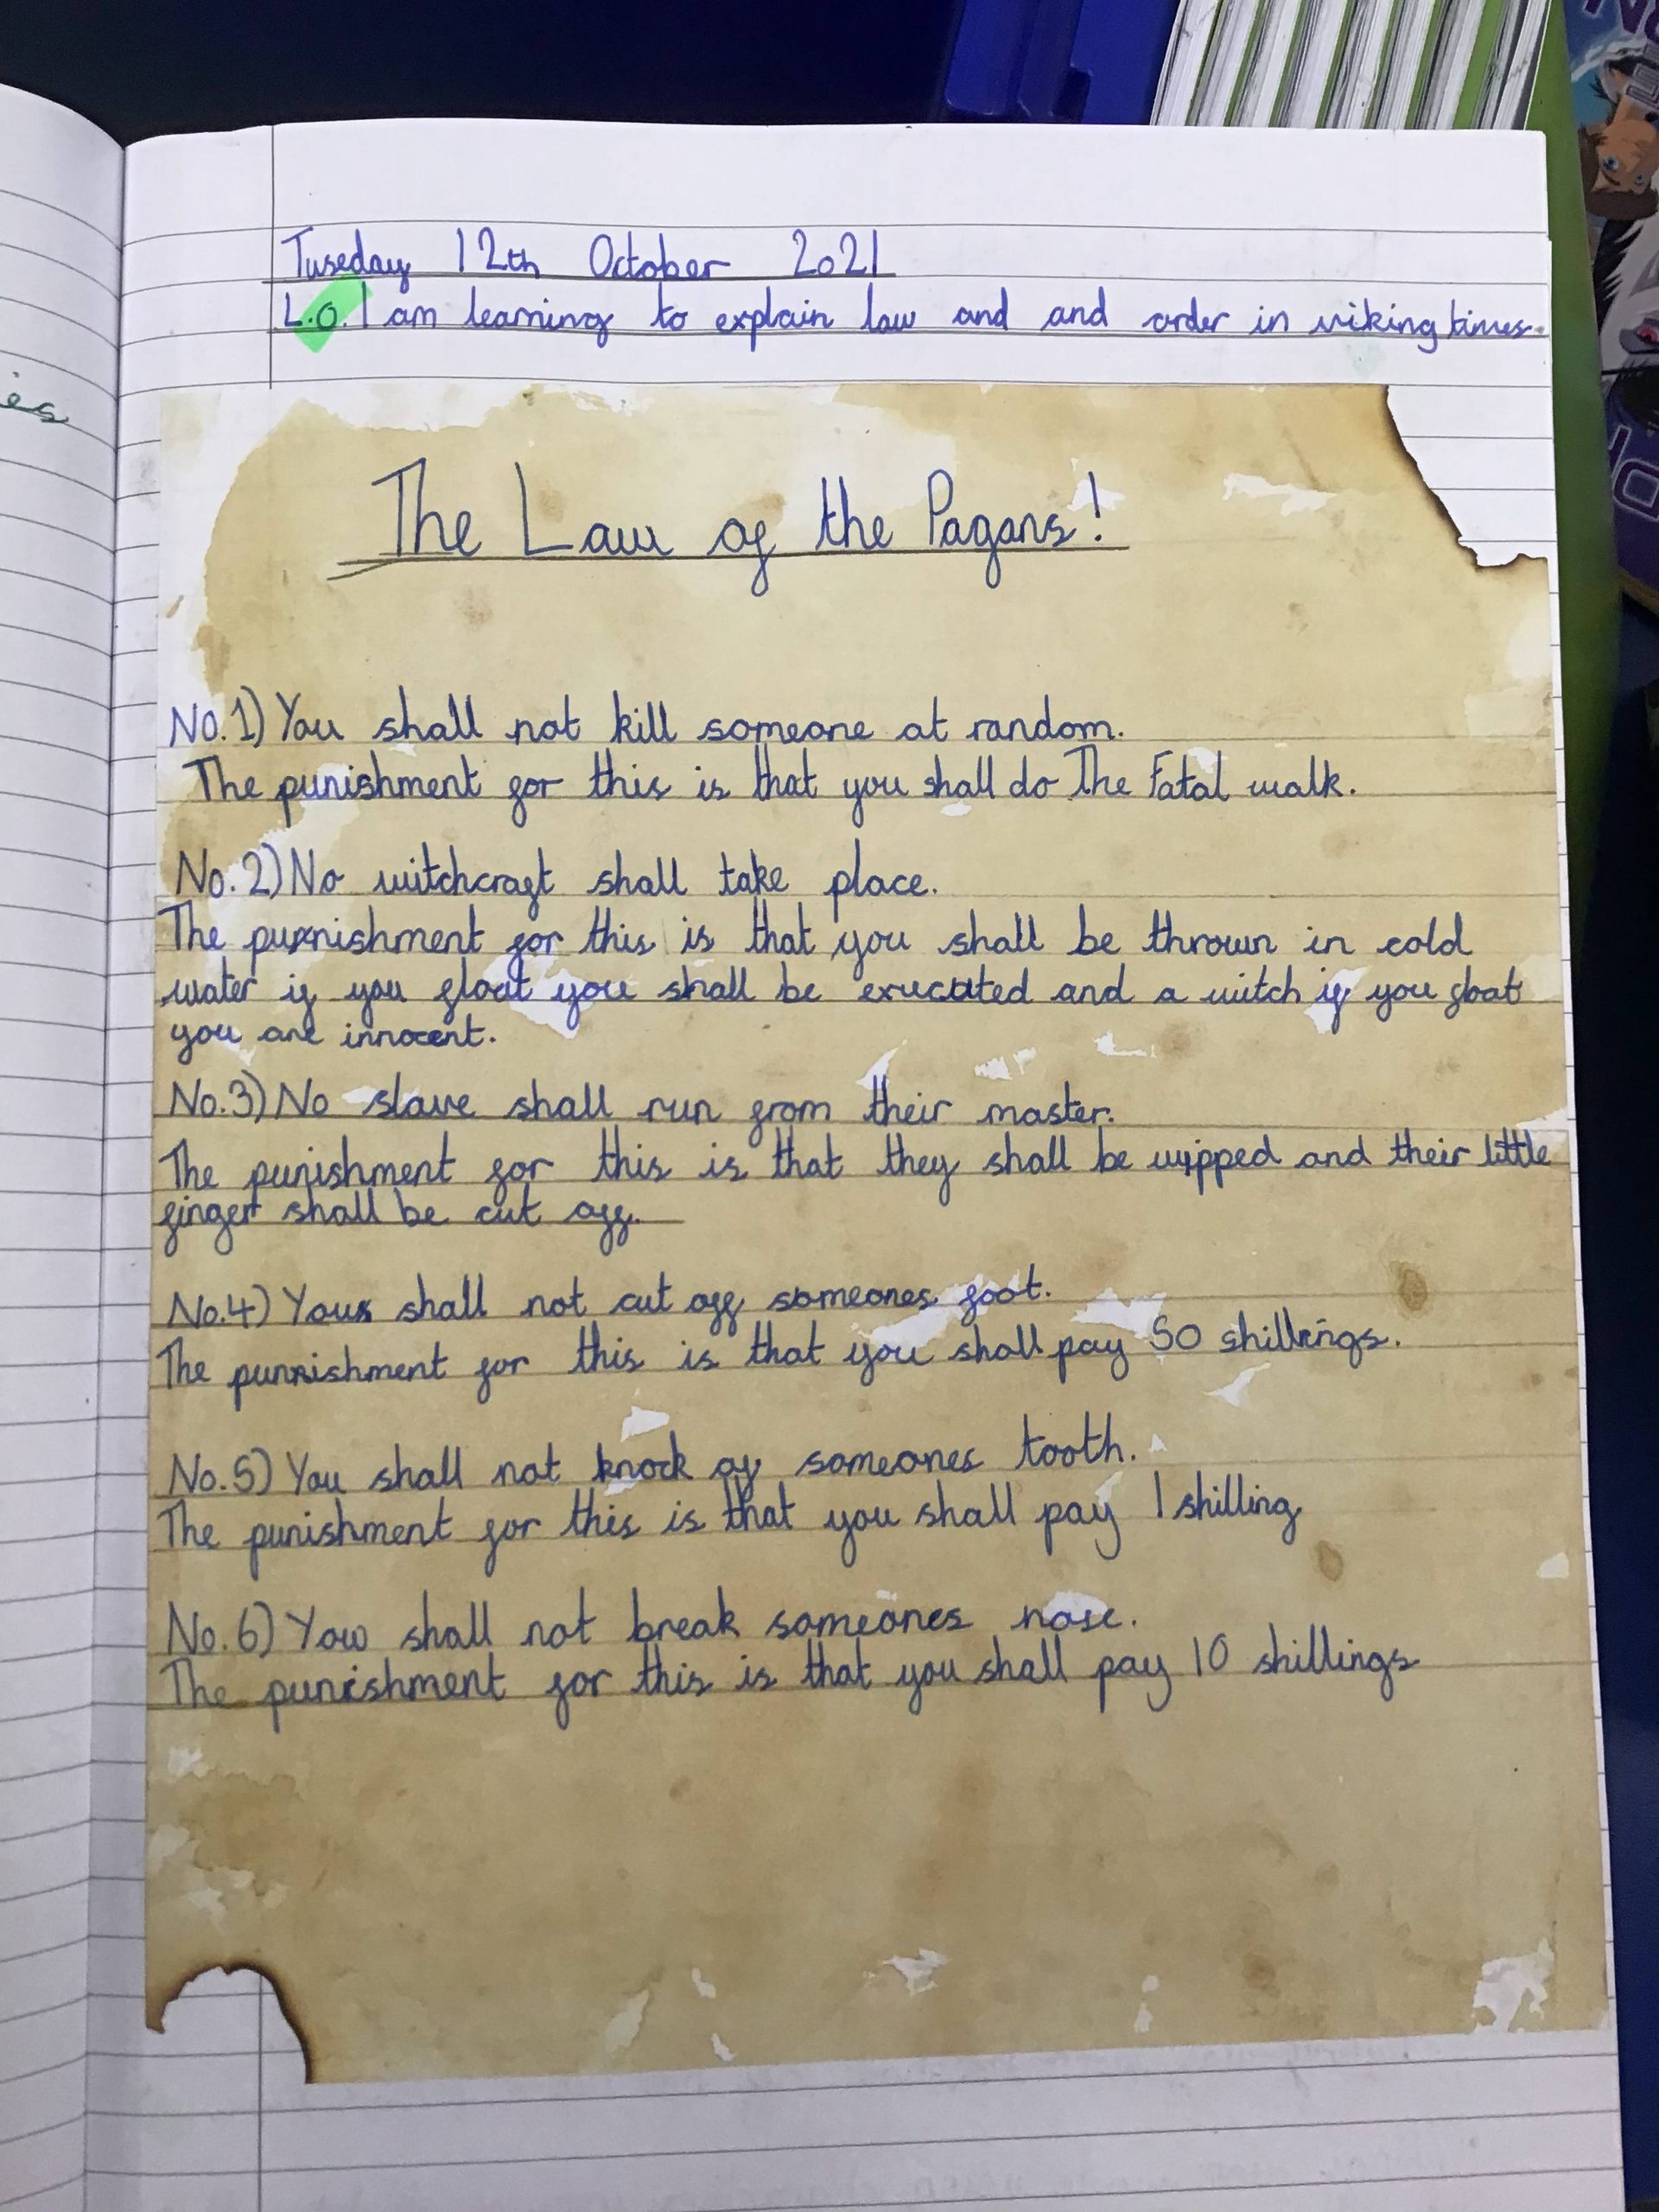 Tuseday 12th October 2021
L.O. I am learning to explain law and and order in viking times.
es
The Law of the Pagans!
No.1) You shall not kill someone at random.
The punishment for this is that you shall do The Fatal walk.
No.2) No witchcraft shall take place.
The punnishment for this is that you shall be thrown in cold
water if you float you shall be exucuted and a witch if you float
you are innocent.
No.3) No slave shall run from their master.
The punishment for this is that they shall be wipped and their little
finger shall be cut off.
No.4) You shall not cut off someones foot.
The punnishment for this is that you shall pay 50 shillings.
No.5) You shall not knock of someones tooth.
The punishment for this is that you shall pay 1 shilling
No.6) You shall not break someones nose.
The punishment for this is that you shall pay 10 shillings